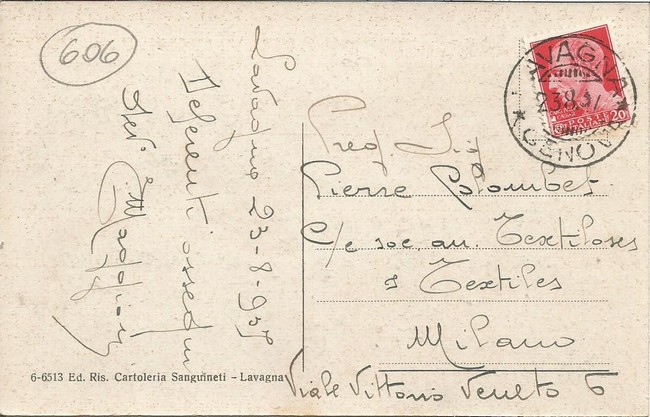 606
Lavagna 23-8-937
Deferenti ossequi
Dev.
Preg. Sig.
Pierre Colombet
C/o soc an. Textiloses
& Textiles
Milano
Viale Vittorio Veneto 6
LAVAGNA
23.8.37
* GENOVA *
POSTE ITALIANE
20
6-6513 Ed. Ris. Cartoleria Sanguineti - Lavagna